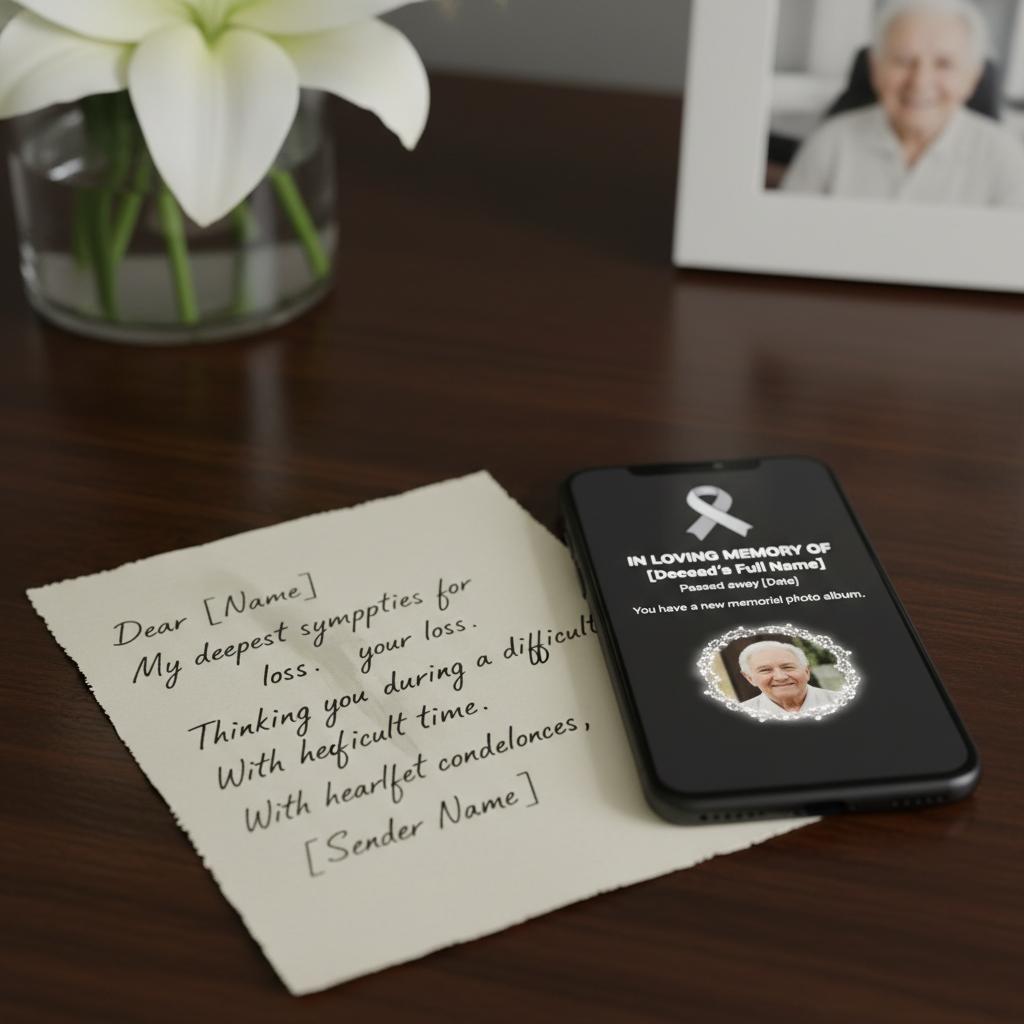 Dear [Name]
My deepest symppties for
loss. your loss.
Thinking you during a difficult
With hecficult time.
With hearlfet condelonces,
[Sender Name]
IN LOVING MEMORY OF
[Deceed's Full Name]
Passed away [Date]
You have a new memoriel photo album.